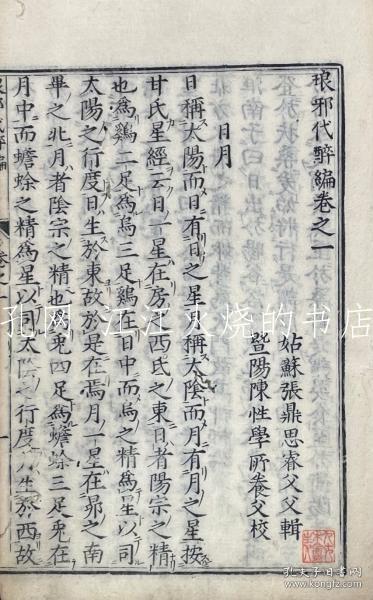 琅邪代醉編卷之一
姑蘇張鼎思睿父父輯
暨陽陳性學所養父校
日月
日稱太陽而日有日之星月稱太陰而月有月之星按
甘氏星經云日一星在房之西氐之東日者陽宗之精
也為鷄二足為烏三足鷄在日中而烏之精為星以司
太陽之行度日生於東故於是在焉月一星在昴之南
畢之北月者陰宗之精也兎四足為蟾蜍三足兎在
月中而蟾蜍之精為星以司太陰之行度月生於西故
琅邪代醉編
卷之一
一
孔网 江江火烧的书店
孔夫子旧书网